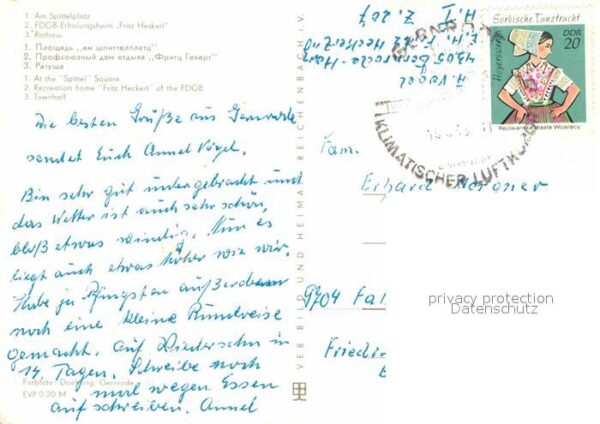 1. Am Spittelplatz
2. FDGB-Erholungsheim „Fritz Heckert"
3. Rathaus
1. Площадь „ам шпиттелплатц"
2. Профсоюзный дом отдыха „Фритц Гекерт"
3. Ратуша
1. At the "Spittel" Square
2. Recreation home "Fritz Heckert" of the FDGB
3. Townhall
Die besten Grüße aus Gernrode
sendet Euch Annel Vogel.
Bin sehr gut untergebracht und
das Wetter ist auch sehr schön,
bloß etwas windig. Nun es
liegt auch etwas höher wie wir.
Habe zu Pfingsten außerdem
noch eine kleine Rundreise
gemacht. Auf Wiedersehn in
14 Tagen. Schreibe noch
mal wegen Essen
aufschreiben. Annel
Farbfoto: Gernrode
EVP 0.20 M
VEB BILD UND HEIMAT REICHENBACH i. V.
A. Vogel
4305 Gernrode-Harz
E. H. Fritz Heckert
H. I Z. 207
KLIMATISCHER LUFTKURORT
Sorbische Tanztracht
DDR
20
Hoyerswerda
Rejowanska drasta Wojerecy
Fam.
Erhard
9704 Fal
Friedr
privacy protection
Datenschutz